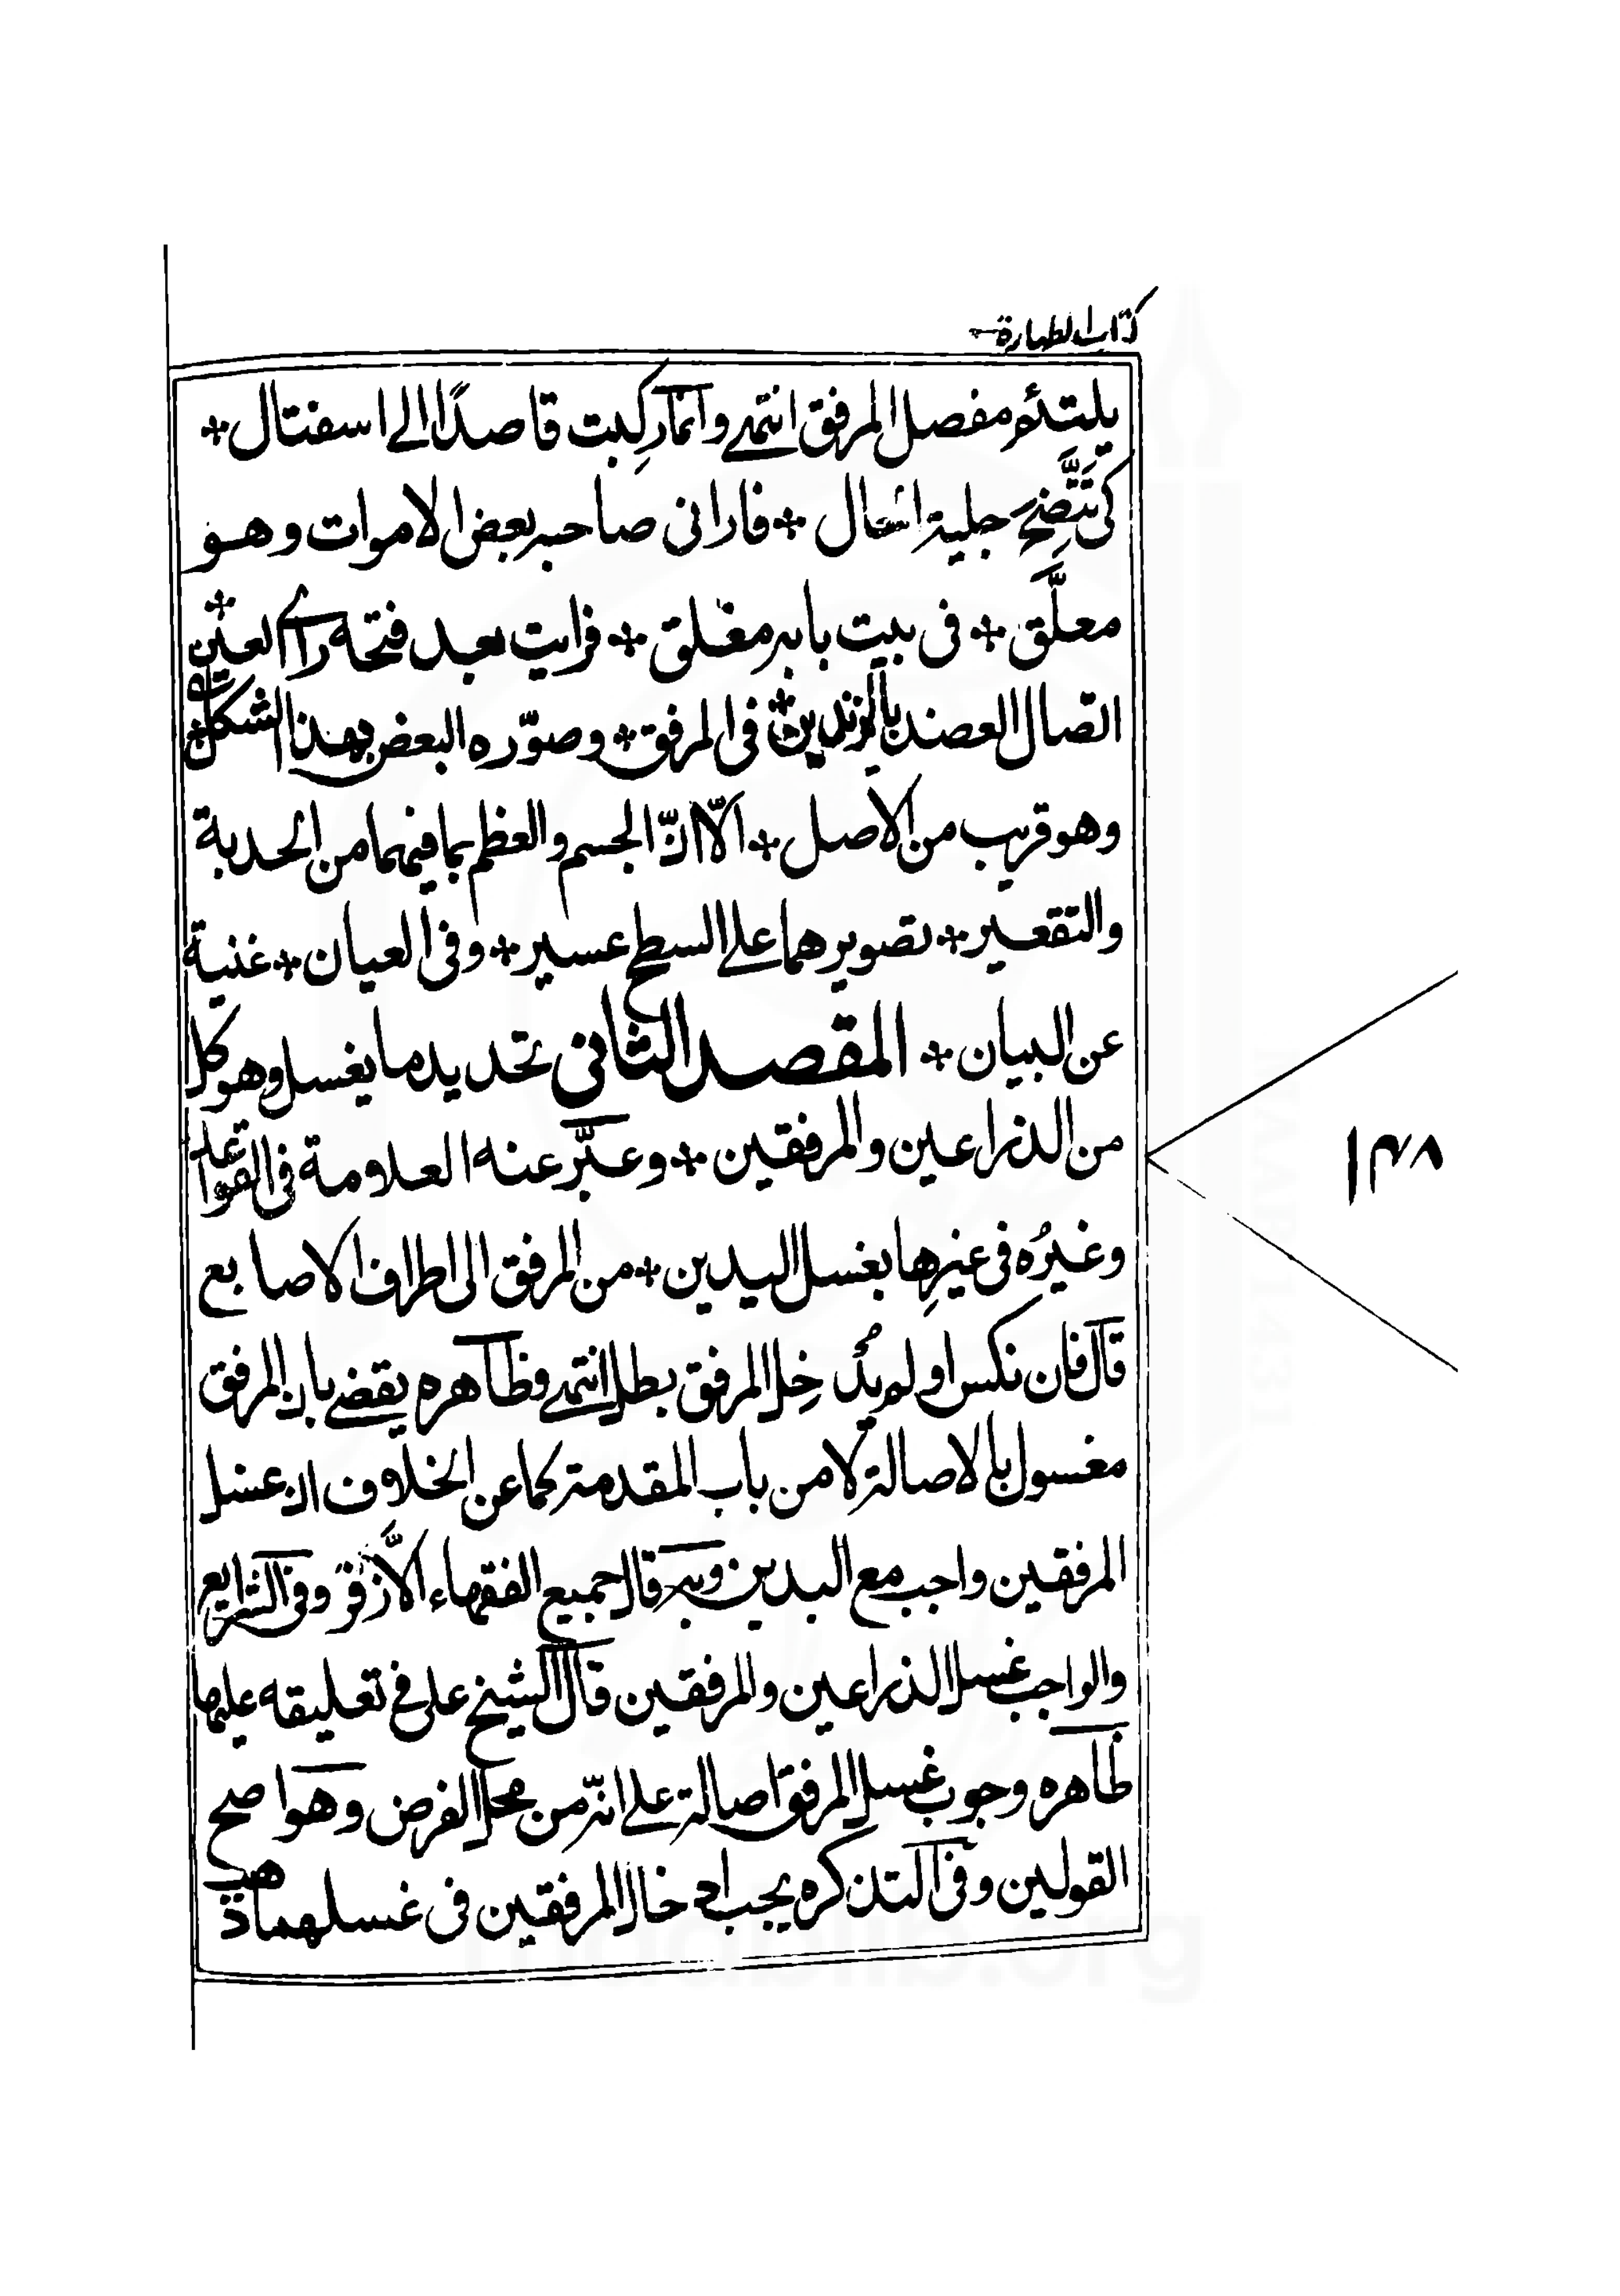 كتاب الطهارة
يلتئم مفصل المرفق انتهى وانما ركبت قاصدًا الى اسفتال
كى تتّضح جلية الحال فارانى صاحبه بعض الاموات وهو
معلّق فى بيت بابه مغلق فرايت بعد فتحه راى العين
اتصال العضد بالزندين فى المرفق وصوّره البعض بهذا الشكل
وهو قريب من الاصل الّا انّ الجسم والعظم بما فيهما من الحدبة
والتقعير تصويرهما على السطح عسير وفى العيان غنية
عن البيان المقصد الثانى تحديد ما يغسل وهو كل
من الذراعين والمرفقين وعبّر عنه العلامة فى القواعد
وغيرُه فى غيرِها بغسل اليدين من المرفق الى اطراف الاصابع
قال فان نكس او لم يُدخِل المرفق بطل انتهى وظاهره يقضى بان المرفق
مغسول بالاصالة لا من باب المقدمة كما عن الخلاف ان غسل
المرفقين واجب مع اليدين وبه قال جميع الفقهاء الّا زفر وفى الشرايع
والواجب غسل الذراعين والمرفقين قال الشيخ على فى تعليقه عليها
ظاهره وجوب غسل المرفق اصالة على انه من محل الفرض وهو اصح
القولين وفى التذكره يجب ادخال المرفقين فى غسلهما ذهب
١٣٨